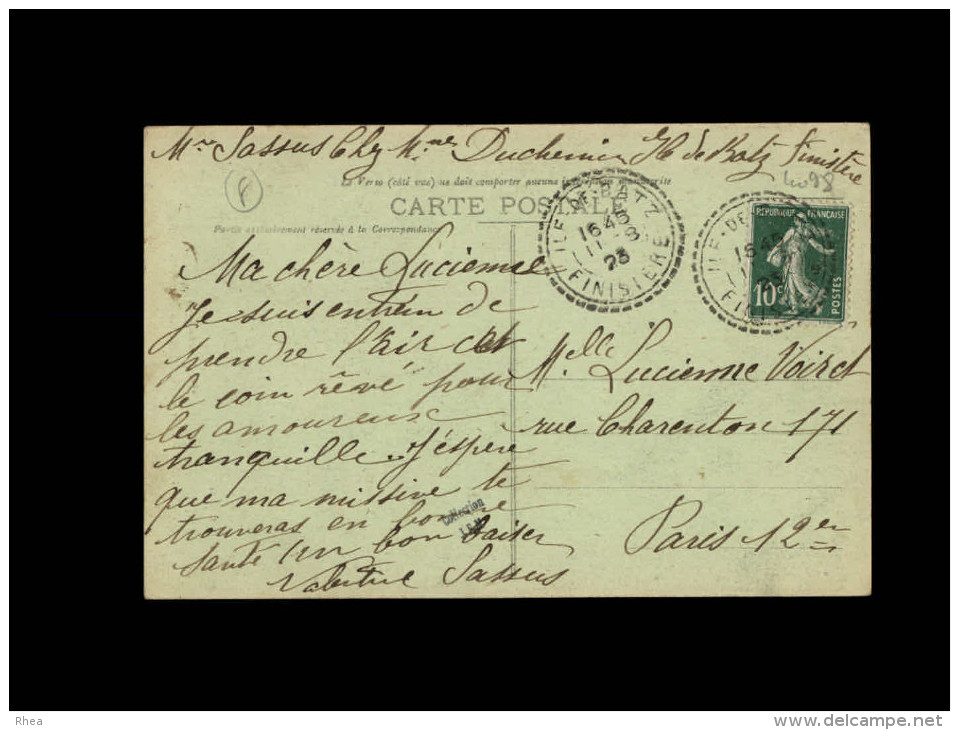 Mme Sassus Chez Mmes Duchemin Ile de Batz Finistère
4098
F
Le Verso (côté vue) ne doit comporter aucune inscription manuscrite
CARTE POSTALE
Partie exclusivement réservée à la Correspondance
ILE-DE-BATZ
1645
11-8
23
FINISTÈRE
ILE-DE-
1645
11
23
REPUBLIQUE FRANÇAISE
10c
POSTES
Ma chère Lucienne
Je suis entrein de
prendre l'air cet
le coin rêvé pour
les amoureux
tranquille. J'éspère
que ma missive te
trouveras en bonne
santé Un bon baiser
Valentine Sassus
Melle Lucienne Voiret
rue Charenton 171
Paris 12er
Collection
Rhea
www.delcampe.net